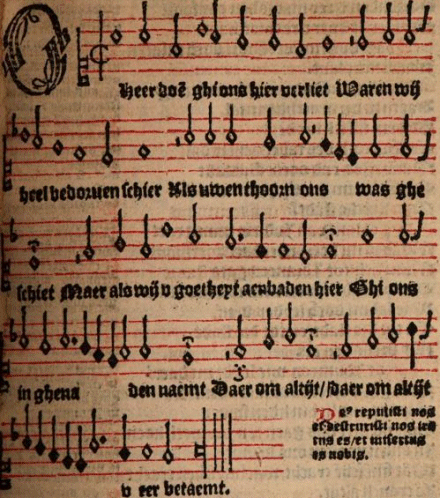 O
Heer doẽ ghi ons hier verliet Waren wij
heel bedoruen schier Als uwen thoorn ons was ghe
schiet Maer als wij v goetheyt aenbaden hier Ghi ons
in ghena den naemt Daer om altijt//Daer om altijt
De⁹ repulisti nos
et destruxisti nos
es nobis.
v eer betaemt.